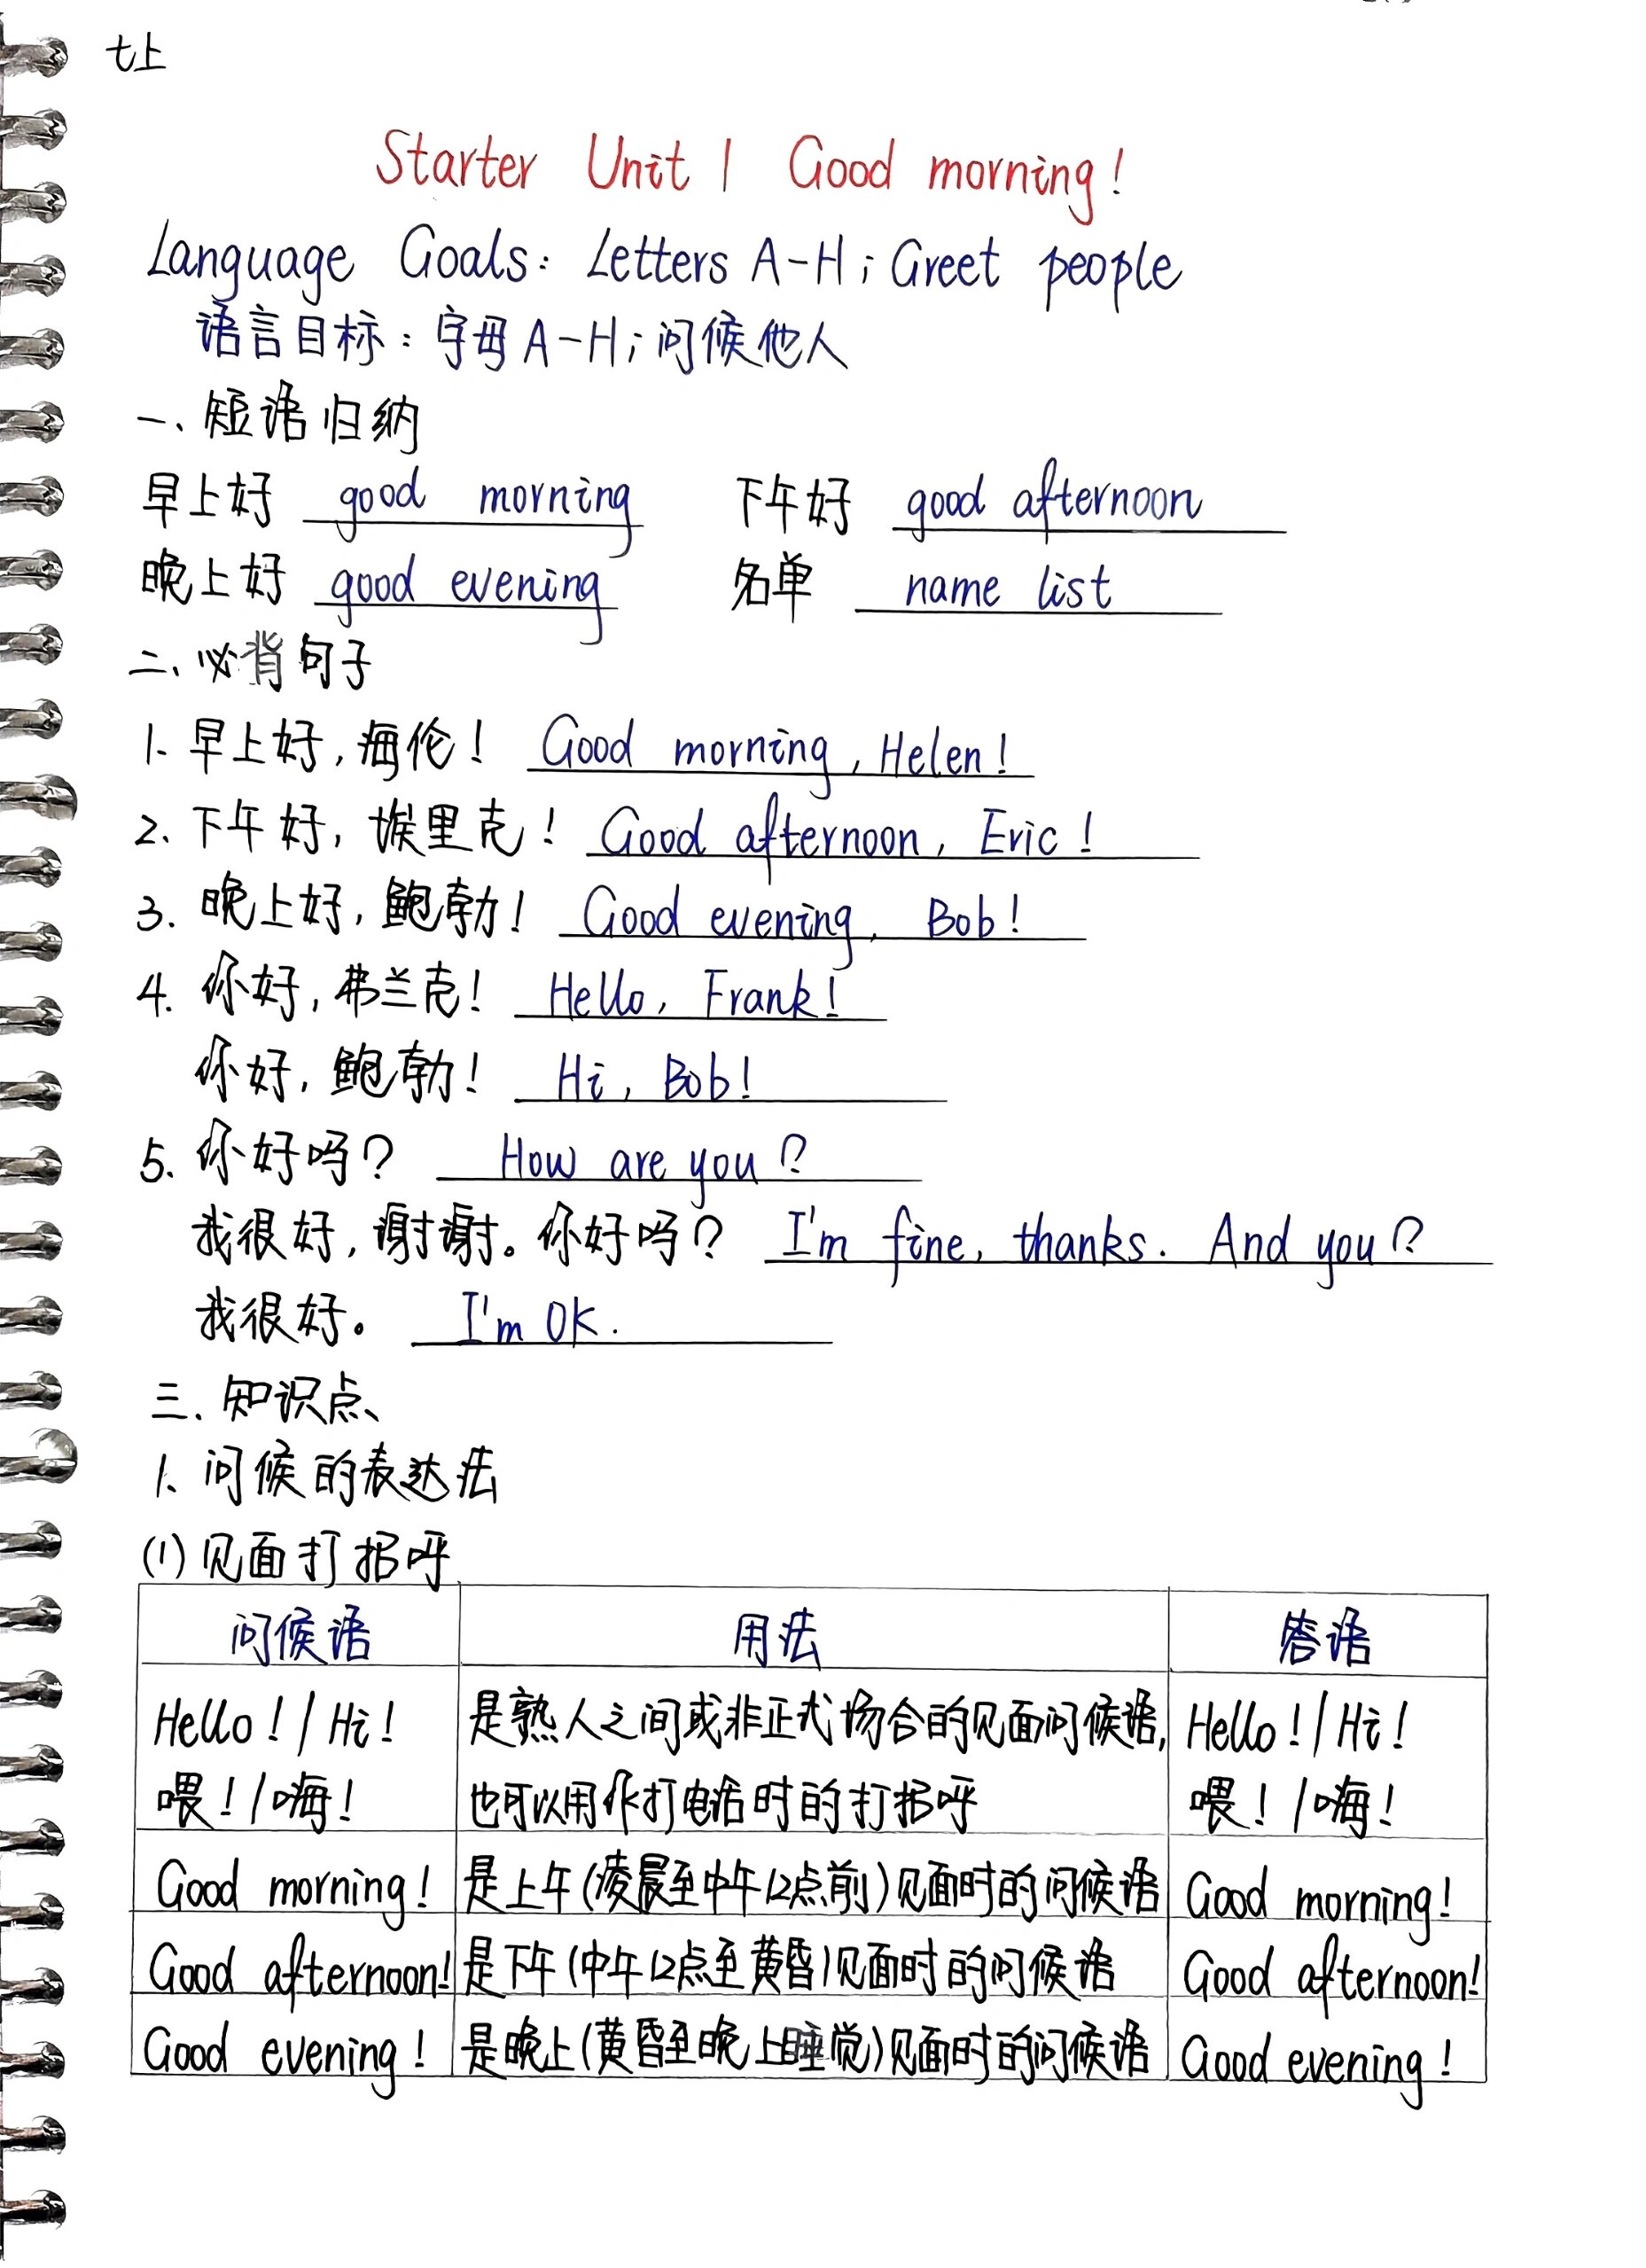 七上
Starter Unit 1 Good morning!
Language Goals: Letters A-H; Greet people
语言目标：字母A-H；问候他人
一、短语归纳
早上好 good morning 下午好 good afternoon
晚上好 good evening 名单 name list
二、必背句子
1. 早上好,海伦! Good morning, Helen!
2. 下午好,埃里克! Good afternoon, Eric!
3. 晚上好,鲍勃! Good evening, Bob!
4. 你好,弗兰克! Hello, Frank!
你好,鲍勃! Hi, Bob!
5. 你好吗? How are you?
我很好,谢谢。你好吗? I'm fine, thanks. And you?
我很好。 I'm OK.
三、知识点
1. 问候的表达法
(1) 见面打招呼
问候语 用法 答语
Hello!/Hi! 是熟人之间或非正式场合的见面问候语, Hello!/Hi!
喂!/嗨! 也可以用作打电话时的打招呼 喂!/嗨!
Good morning! 是上午(凌晨至中午12点前)见面时的问候语 Good morning!
Good afternoon! 是下午(中午12点至黄昏)见面时的问候语 Good afternoon!
Good evening! 是晚上(黄昏至晚上睡觉)见面时的问候语 Good evening!